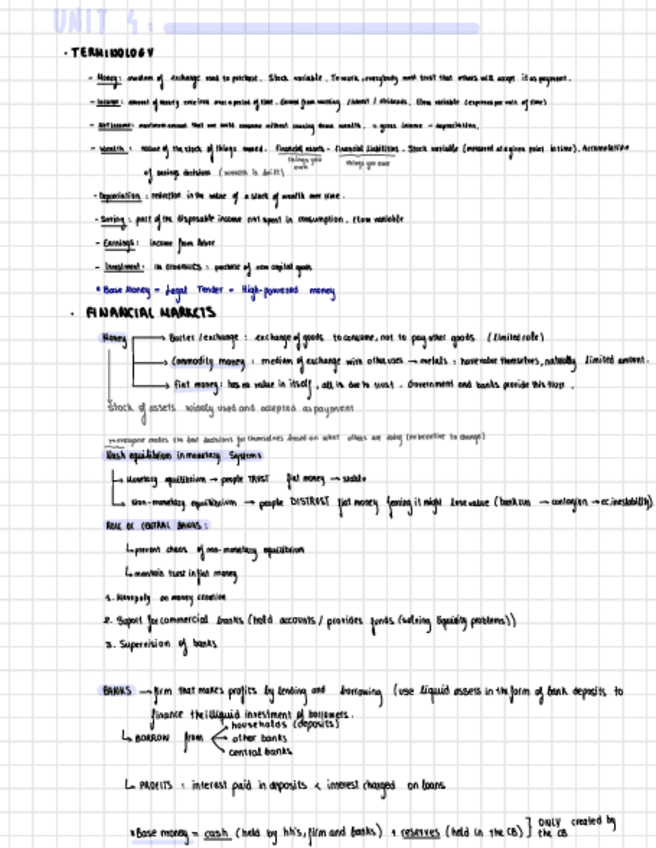 UNIT 4:
· TERMINOLOGY
- Money: medium of exchange used to purchase. Stock variable. To work, everybody must trust that others will accept it as payment.
- Income: amount of money received over a period of time. Comes from working / / dividends. Flow variable (expressed per unit of time)
- Net income: maximum amount that one could consume without reducing wealth. = gross income - depreciation.
- Wealth: value of the stock of things owned. financial assets - financial liabilities. Stock variable (measured at a given point in time). Accumulation
things you own things you owe
of saving decisions (wealth is built)
- Depreciation: reduction in the value of a stock of wealth over time.
- Saving: part of the disposable income not spent in consumption. Flow variable
- Earnings: income from labor
- Investment: in economics: purchase of new capital goods
* Base Money = Legal Tender = High-powered money
· FINANCIAL MARKETS
Money → Barter / exchange: exchange of goods to consume, not to pay other goods (limited role)
→ Commodity money: medium of exchange with other uses → metals: have value themselves, naturally limited amount.
→ Fiat money: has no value in itself, all is due to trust. Government and banks provide this trust.
Stock of assets widely used and accepted as payment
everyone makes the best decisions for themselves based on what others are doing (no incentive to change)
Nash equilibrium in monetary systems
↳ Monetary equilibrium → people TRUST fiat money → stable
↳ Non-monetary equilibrium → people DISTRUST fiat money fearing it might lose value (bank run → contagion → ec. inestability)
ROLE OF CENTRAL BANKS:
↳ prevent chaos of non-monetary equilibrium
↳ maintain trust in fiat money
1. Monopoly on money creation
2. Suport for commercial banks (hold accounts / provides funds (solving liquidity problems))
3. Supervision of banks
BANKS → firm that makes profits by lending and borrowing (use liquid assess in the form of bank deposits to
finance the illiquid investment of borrowers.
↳ BORROW from households (deposits)
other banks
central banks
↳ PROFITS: interest paid in deposits < interest charged on loans
* Base money = cash (held by hh's, firm and banks) + reserves (held in the CB) } ONLY created by
the CB